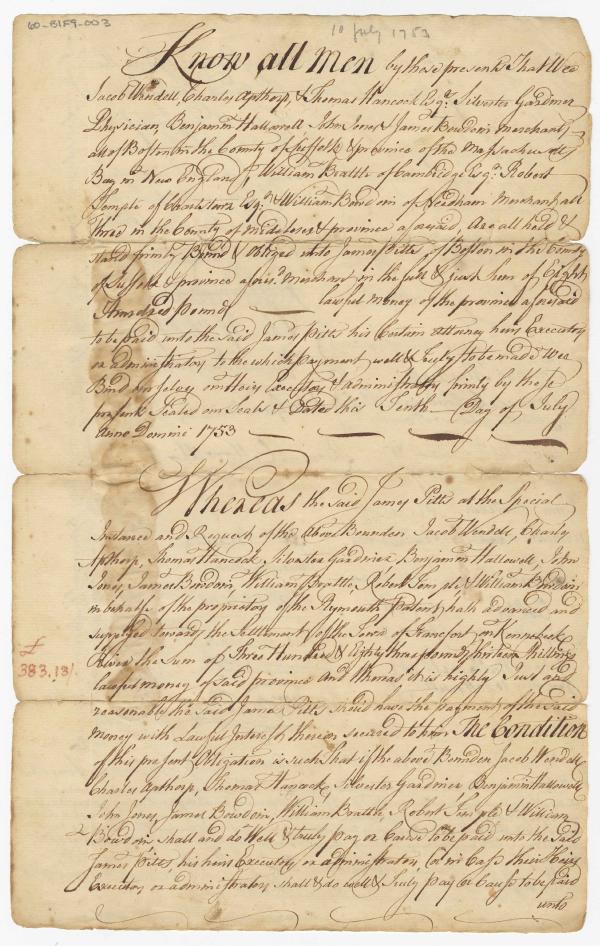 60-51F9-003
10 July 1753
Know all Men by these presents That Wee
Jacob Wendell, Charles Apthorp, & Thomas Hancock Esqrs. Silvester Gardiner
Physician, Benjamin Hallowell John Jones & James Bowdoin Merchants
all of Boston in the County of Suffolk & province of the Massachusetts
Bay in New England, William Brattle of Cambridge Esqr. Robert
Temple of Charlstown Esqr. & William Bowdoin of Needham Merchant all
three in the County of Middlesex & province aforesaid, Are all held &
stand firmly Bound & Obliged unto James Pitts, of Boston in the County
of Suffolk & province aforesd. Merchant in the full & just Sum of Eight
Hundred Pounds lawful money of the province aforesaid
to be paid unto the said James Pitts his Certain Attorney heirs, Executors
or administrators to the which payment well & truly to be made Wee
Bind our selves our Heirs Executors & administrators firmly by these
presents Sealed our Seals & Dated this Tenth Day of July
Anno Domini 1753
Whereas the said James Pitts at the Special
Instance and Request of the Above Bounden Jacob Wendell, Charles
Apthorp, Thomas Hancock, Silvester Gardiner, Benjamin Hallowell, John
Jones, James Bowdoin, William Brattle, Robert Temple, & William Bowdoin,
in behalfe of the proprietors of the Plymouth Patent, hath advanced and
supplyed towards the Settlement of the Town of Francfort on Kennebeck
River the Sum of Three Hundred & Eighty three pounds thirteen Shillings
£
383.13/.
lawful money of said province and Whereas it is highly Just and
reasonable the said James Pitts should have the payment of the said
Money with Lawful Interest thereon secured to him The Condition
of this present Obligation is such That if the above Bounden Jacob Wendell
Charles Apthorp, Thomas Hancock, Silvester Gardiner Benjamin Hallowell
John Jones, James Bowdoin, William Brattle, Robert Temple & William
Bowdoin shall and do Well & truly pay or Cause to be paid unto the said
James Pitts his heirs Executors or administrators (or in Case their Heirs
Executors or administrators shall & do well & Truly pay or Cause to be paid
unto